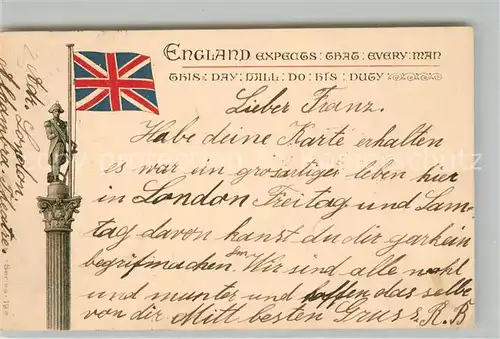 ENGLAND EXPECTS : THAT : EVERY : MAN
THIS : DAY : WILL : DO : HIS : DUTY
Lieber Franz.
Habe deine Karte erhalten
es war ein grosartiger leben hier
in London Freitag und Sam-
tag davon kanst du dir gar kein
begrif machen. Wir sind alle wohl
und munter und hoffen das selbe
von dir Mitt besten Gruss R. B
London
Alhambra Theater
Series 12